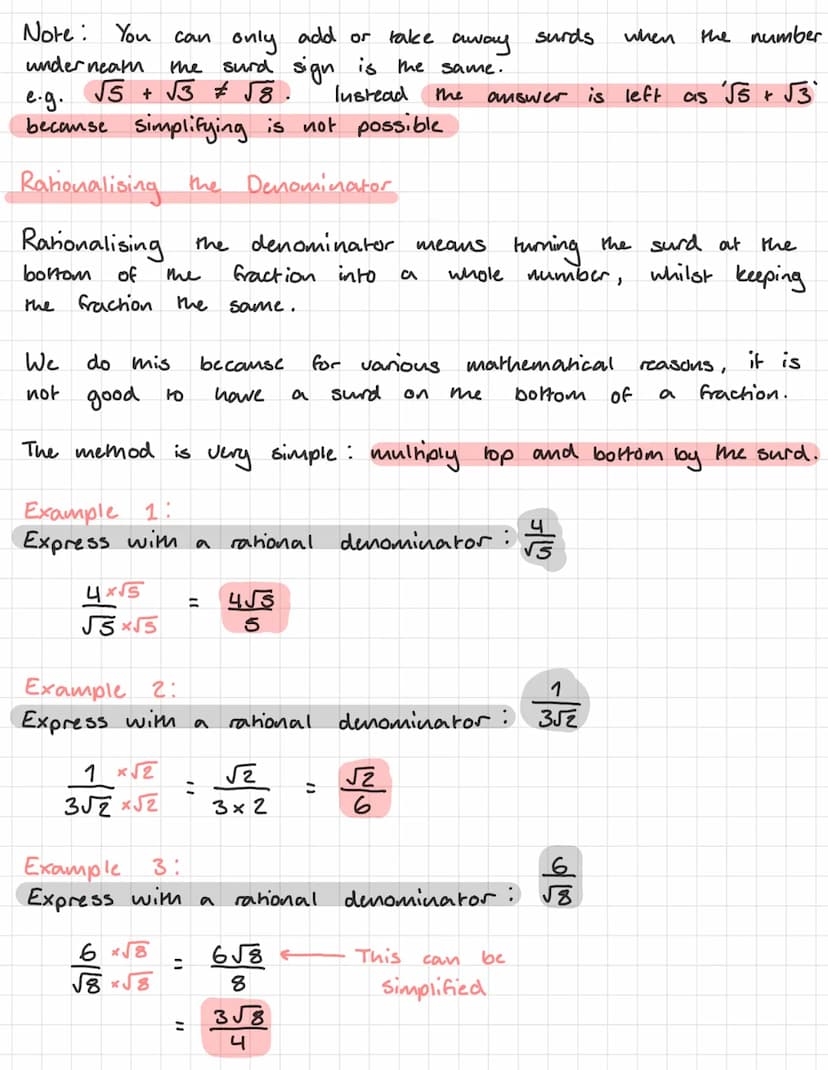 Note: You can only add or take away surds when the number
underneath the surd sign is the same.
e.g. √5 + √3 ≠ √8. Instead the answer is left as '√5 + √3'
because simplifying is not possible
Rationalising the Denominator
Rationalising the denominator means turning the surd at the
bottom of the fraction into a whole number, whilst keeping
the fraction the same.
We do this because for various mathematical reasons, it is
not good to have a surd on the bottom of a fraction.
The method is very simple: multiply top and bottom by the surd.
Example 1:
Express with a rational denominator: 4/√5
4 ×√5 / √5 ×√5 = 4√5 / 5
Example 2:
Express with a rational denominator: 1/3√2
1 ×√2 / 3√2 ×√2 = √2 / 3×2 = √2 / 6
Example 3:
Express with a rational denominator: 6/√8
6 ×√8 / √8 ×√8 = 6√8 / 8 ← This can be
simplified
= 3√8 / 4